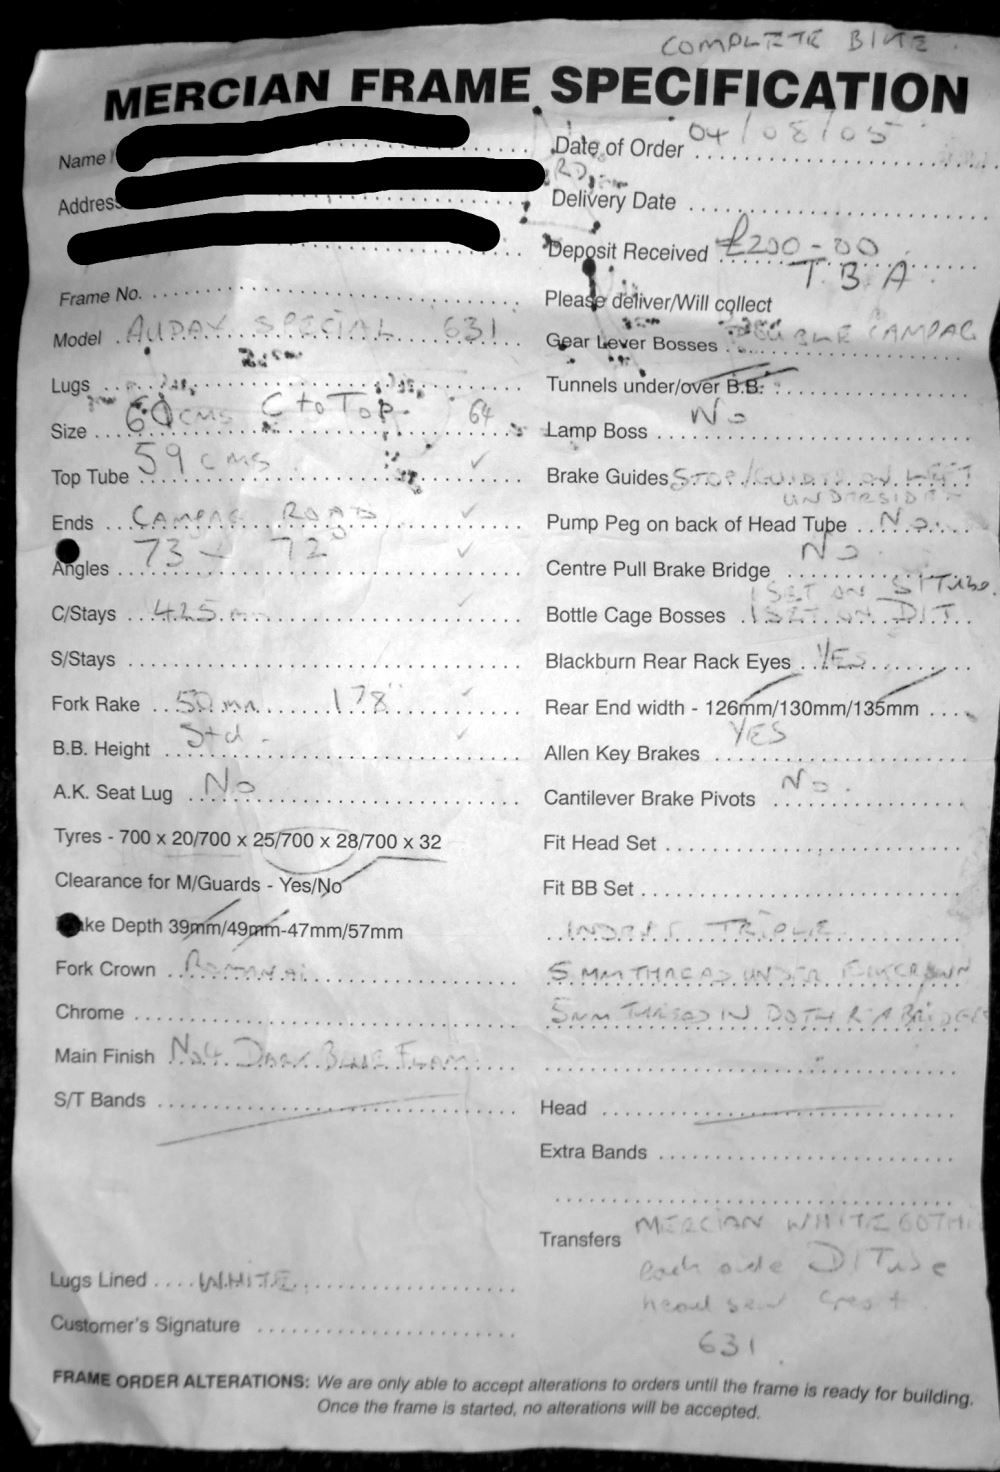 COMPLETE BIKE
MERCIAN FRAME SPECIFICATION
Name
Address
Frame No.
Model AUDAX SPECIAL 631
Lugs
Size 60 CMS C to Top 64
Top Tube 59 CMS
Ends CAMPAG ROAD
Angles 73 72°
C/Stays 425 mm
S/Stays
Fork Rake 50 mm 178
B.B. Height Std -
A.K. Seat Lug No
Tyres - 700 x 20/700 x 25/700 x 28/700 x 32
Clearance for M/Guards - Yes/No
ke Depth 39mm/49mm-47mm/57mm
Fork Crown
Chrome
Main Finish No4. DARK BLUE FLAM
S/T Bands
Lugs Lined WHITE
Customer's Signature
Date of Order 04/08/05
RD
Delivery Date
Deposit Received £200-00
T.B.A
Please deliver/Will collect
Gear Lever Bosses DOUBLE CAMPAG
Tunnels under/over B.B.
Lamp Boss No
Brake Guides STOP/GUIDES ON LEFT
UNDERSIDE
Pump Peg on back of Head Tube No
Centre Pull Brake Bridge No
1 SET ON S/Tube.
Bottle Cage Bosses 1 SET ON D/T.
Blackburn Rear Rack Eyes YES
Rear End width - 126mm/130mm/135mm
Allen Key Brakes YES
Cantilever Brake Pivots No.
Fit Head Set
Fit BB Set
TRIPLE
5MM THREAD UNDER FORKCROWN
5MM THREAD IN BOTH R/A BRIDGES
Head
Extra Bands
Transfers MERCIAN WHITE GOTHI
each side D/Tube
head seat crest.
631
FRAME ORDER ALTERATIONS: We are only able to accept alterations to orders until the frame is ready for building.
Once the frame is started, no alterations will be accepted.